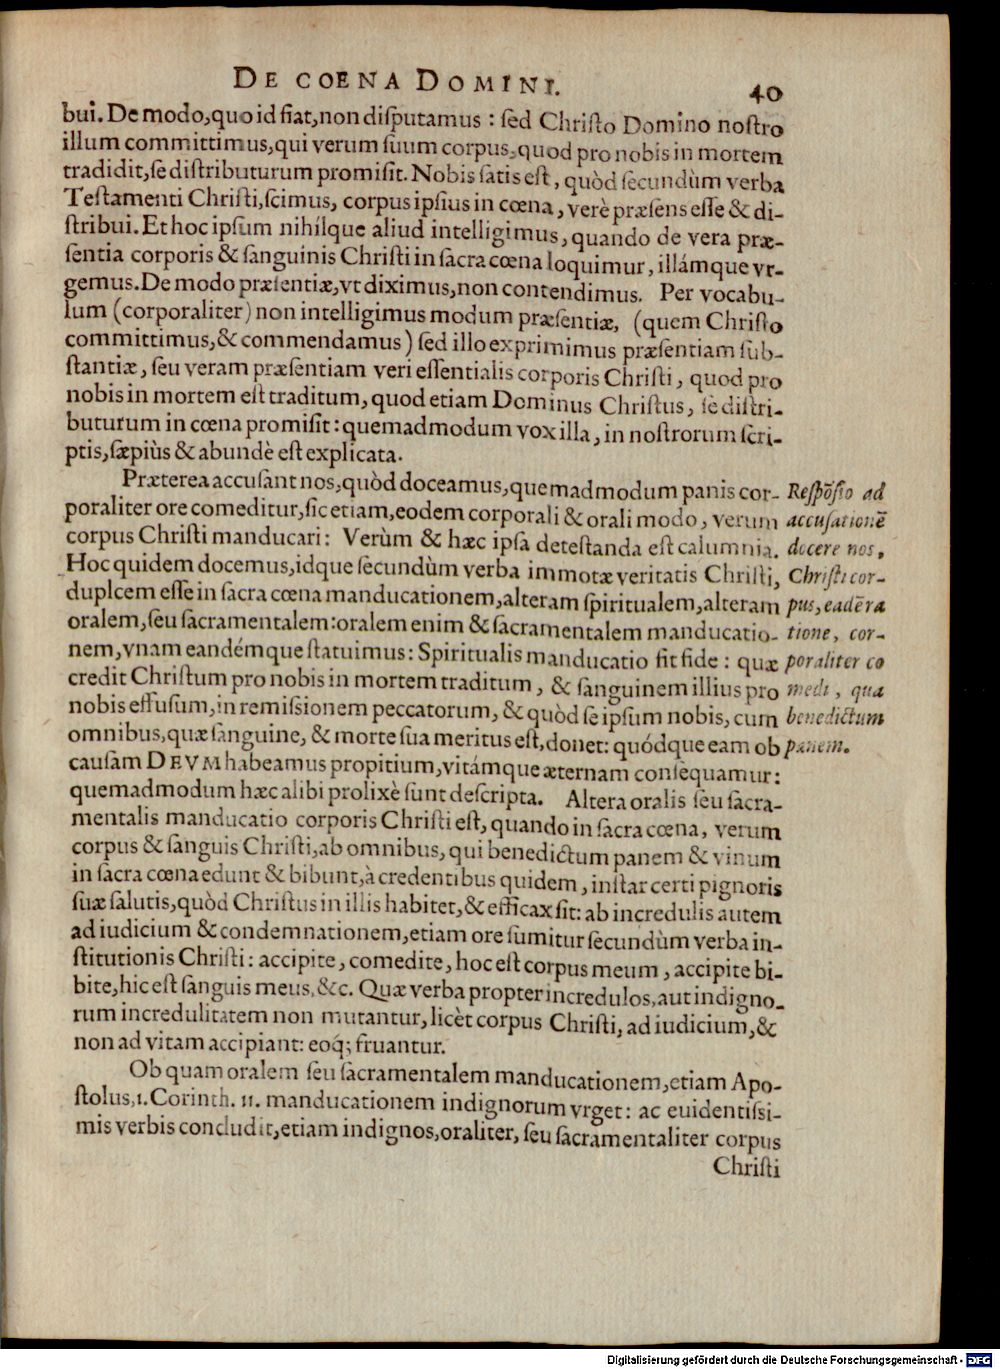 DE COENA DOMINI.
40
bui. De modo, quo id fiat, non disputamus : sed Christo Domino nostro
illum committimus, qui verum suum corpus, quod pro nobis in mortem
tradidit, se distributurum promisit. Nobis satis est, quòd secundùm verba
Testamenti Christi, scimus, corpus ipsius in cœna, verè præsens esse & di-
stribui. Et hoc ipsum nihílque aliud intelligimus, quando de vera præ-
sentia corporis & sanguinis Christi in sacra cœna loquimur, illámque vr-
gemus. De modo præsentiæ, vt diximus, non contendimus. Per vocabu-
lum (corporaliter) non intelligimus modum præsentiæ, (quem Christo
committimus, & commendamus) sed illo exprimimus præsentiam sub-
stantiæ, seu veram præsentiam veri essentialis corporis Christi, quod pro
nobis in mortem est traditum, quod etiam Dominus Christus, sè distri-
buturum in cœna promisit : quemadmodum vox illa, in nostrorum scri-
ptis, sæpiùs & abundè est explicata.
Præterea accusant nos, quòd doceamus, quemadmodum panis cor-
poraliter ore comeditur, sic etiam, eodem corporali & orali modo, verum
corpus Christi manducari : Verùm & hæc ipsa detestanda est calumnia.
Hoc quidem docemus, idque secundùm verba immotæ veritatis Christi,
duplcem esse in sacra cœna manducationem, alteram spiritualem, alteram
oralem, seu sacramentalem : oralem enim & sacramentalem manducatio-
nem, vnam eandémque statuimus : Spiritualis manducatio fit fide : quæ
credit Christum pro nobis in mortem traditum, & sanguinem illius pro
nobis effusum, in remissionem peccatorum, & quòd se ipsum nobis, cum
omnibus, quæ sanguine, & morte sua meritus est, donet : quódque eam ob
causam DEVM habeamus propitium, vitámque æternam consequamur :
quemadmodum hæc alibi prolixè sunt descripta. Altera oralis seu sacra-
mentalis manducatio corporis Christi est, quando in sacra cœna, verum
corpus & sanguis Christi, ab omnibus, qui benedictum panem & vinum
in sacra cœna edunt & bibunt, à credentibus quidem, instar certi pignoris
suæ salutis, quòd Christus in illis habitet, & efficax sit : ab incredulis autem
ad iudicium & condemnationem, etiam ore sumitur secundùm verba in-
stitutionis Christi : accipite, comedite, hoc est corpus meum, accipite bi-
bite, hic est sanguis meus, &c. Quæ verba propter incredulos, aut indigno-
rum incredulitatem non mutantur, licèt corpus Christi, ad iudicium, &
non ad vitam accipiant : eoq́; fruantur.
Ob quam oralem seu sacramentalem manducationem, etiam Apo-
stolus, 1. Corinth. 11. manducationem indignorum vrget : ac euidentissi-
mis verbis concludit, etiam indignos, oraliter, seu sacramentaliter corpus
Christi
Respõsio ad
accusationẽ
docere nos,
Christi cor-
pus, eadẽ ra
tione, cor-
poraliter co
medi, qua
benedictum
panem.
Digitalisierung gefördert durch die Deutsche Forschungsgemeinschaft - DFG